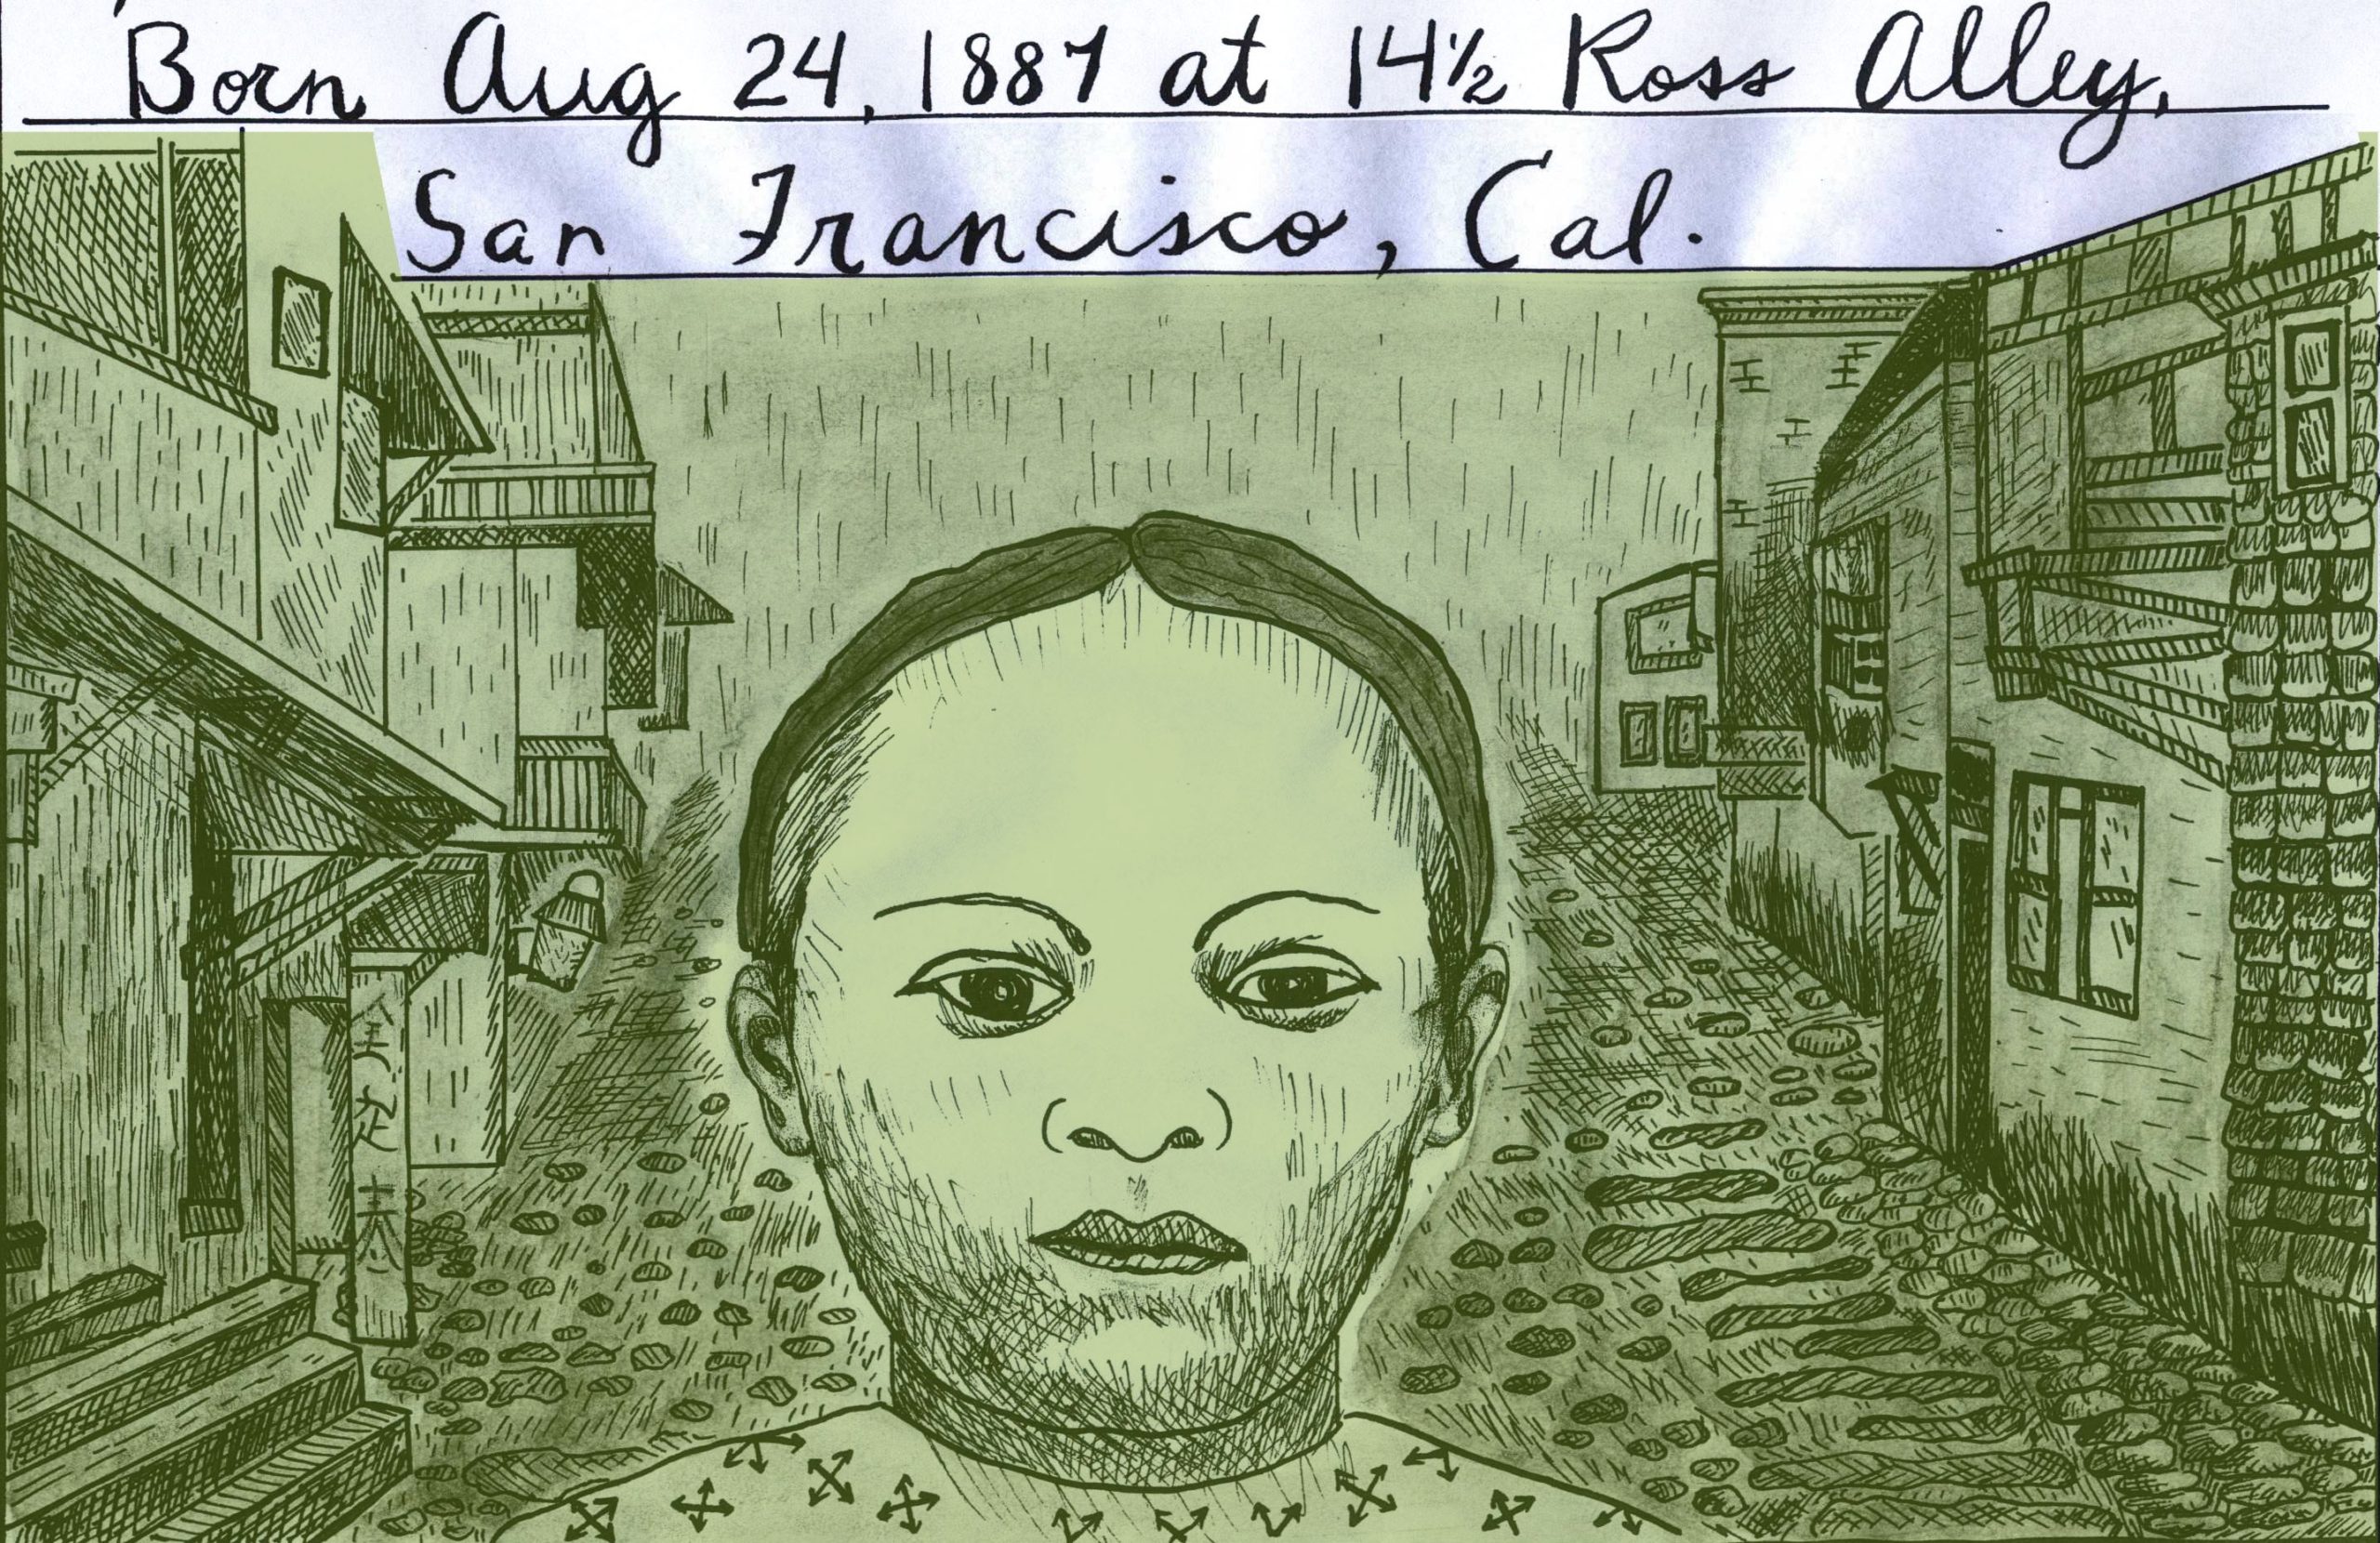 Born Aug 24, 1887 at 14½ Ross Alley,
San Francisco, Cal.